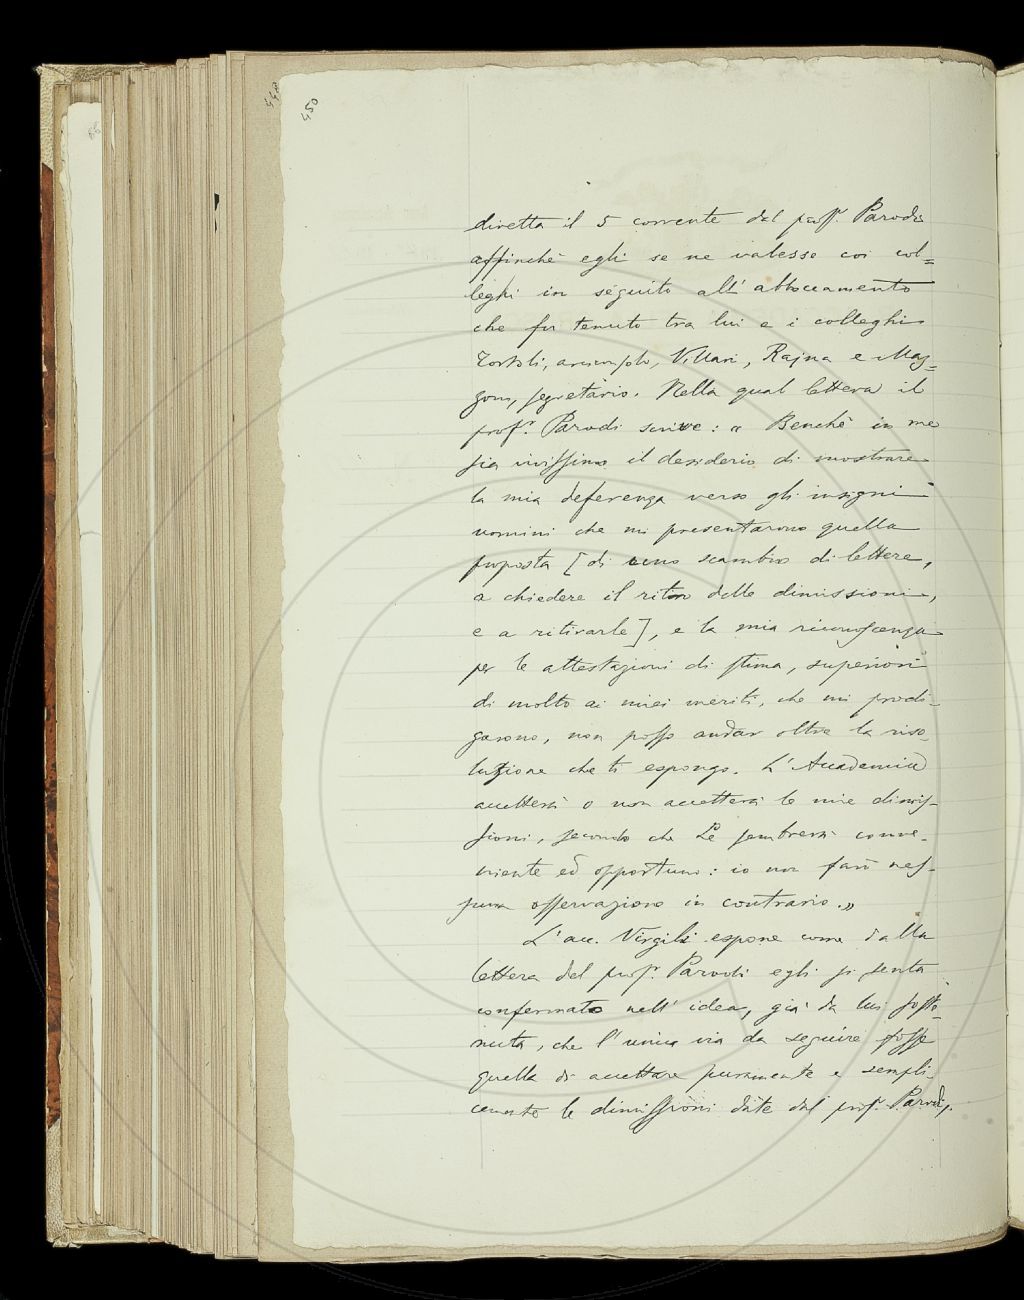 450
diretta il 5 corrente dal prof.r Parodi
affinchè egli se ne valesse coi col=
leghi in séguito all' abboccamento
che fu tenuto tra lui e i colleghi
Tortoli, arciconsolo, Villari, Rajna e Maz=
zoni, segretario. Nella qual lettera il
prof.r Parodi scrive: « Benchè in me
sia vivissimo il desiderio di mostrare
la mia deferenza verso gli insigni
uomini che mi presentarono quella
proposta [di uno scambio di lettere,
a chiedere il ritiro delle dimissioni,
e a ritirarle], e la mia riconoscenza
per le attestazioni di stima, superiori
di molto ai miei meriti, che mi prodi-
garono, non posso andar oltre la riso-
luzione che ti espongo. L'Accademia
accetterà o non accetterà le mie dimis-
sioni, secondo che Le sembrerà conve-
niente ed opportuno: io non farò nes-
suna osservazione in contrario.»
L'acc. Virgili espone come dalla
lettera del prof.r Parodi egli si senta
confermato nell' idea, già da lui soste-
nuta, che l'unica via da seguire fosse
quella di accettare puramente e sempli-
cemente le dimissioni date dal prof.r Parodi,